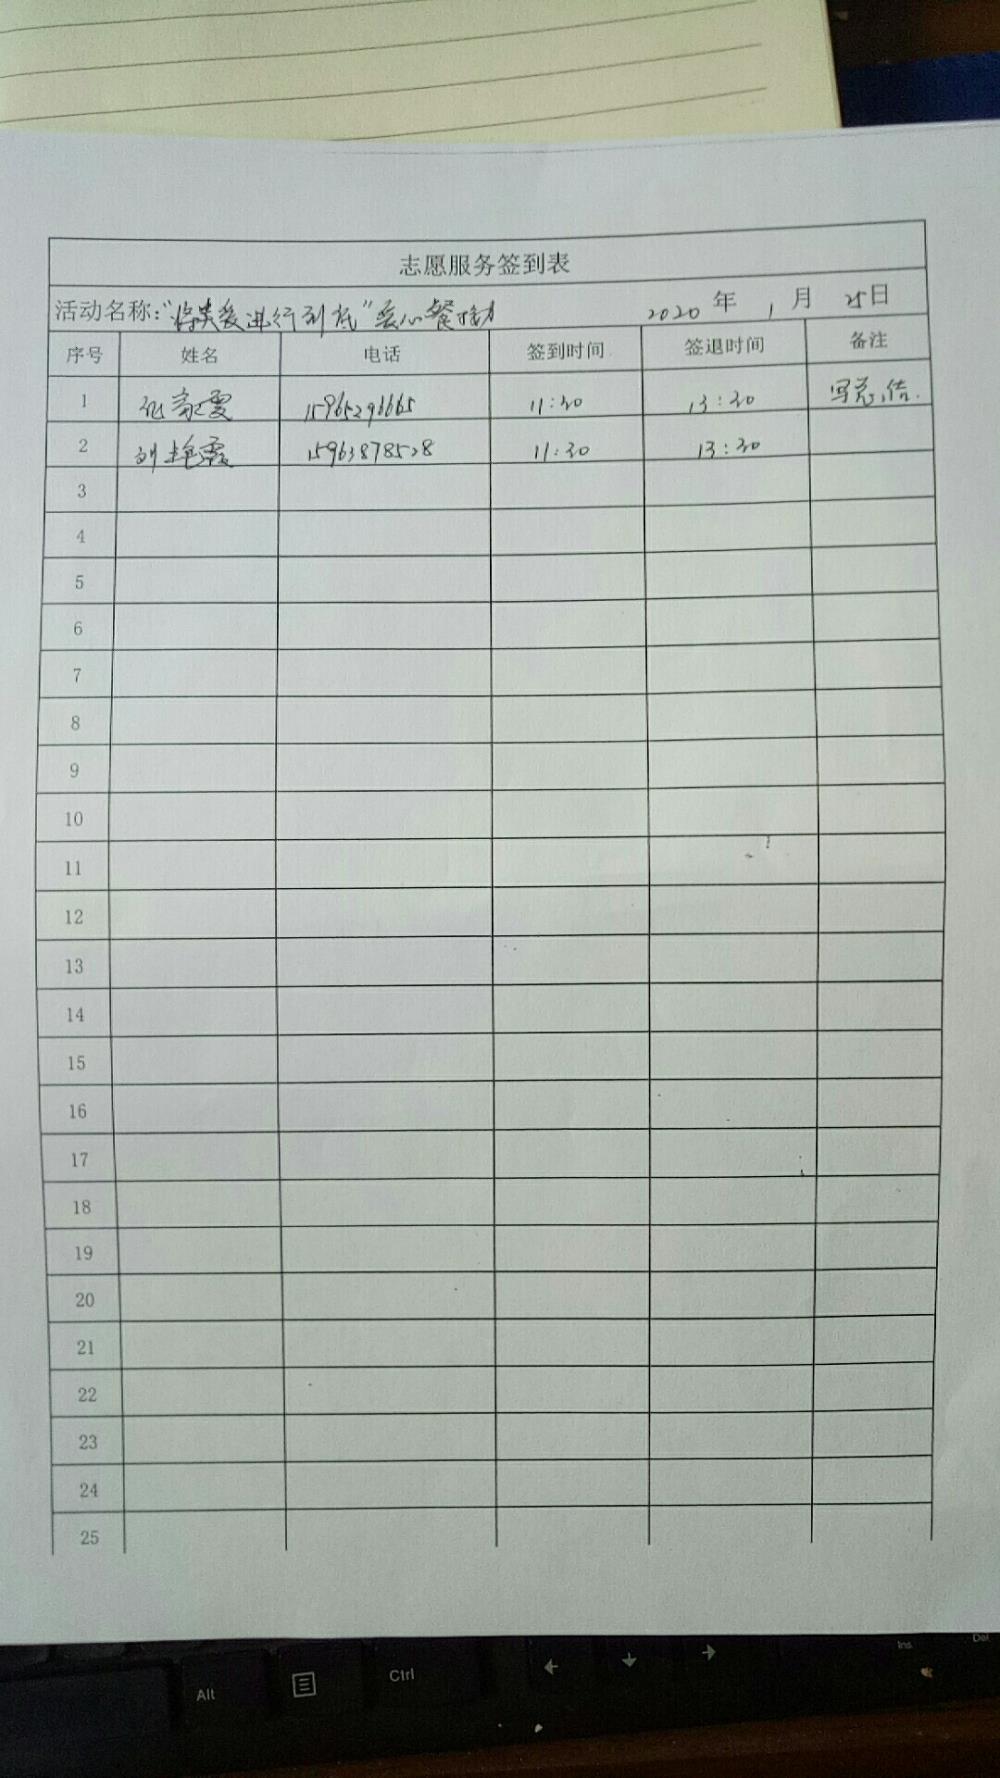 志愿服务签到表
活动名称:“将关爱进行到底”爱心餐活动 2020年1月25日
序号 姓名 电话 签到时间 签退时间 备注
1 15965291665 11:30 13:30 写总结.
2 刘艳霞 15963878528 11:30 13:30
3
4
5
6
7
8
9
10
11
12
13
14
15
16
17
18
19
20
21
22
23
24
25
Alt Ctrl ← ↓ → Ins Del